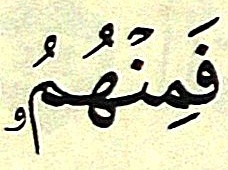 فَمِنۡهُمُۥ